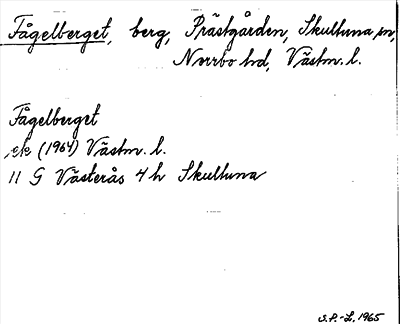 Fågelberget, berg, Prästgården, Skultuna sn,
Norrbo hd, Västm. l.
Fågelberget
ek (1964) Västm. l.
11 G Västerås 4 h Skultuna
S.P.-L. 1965